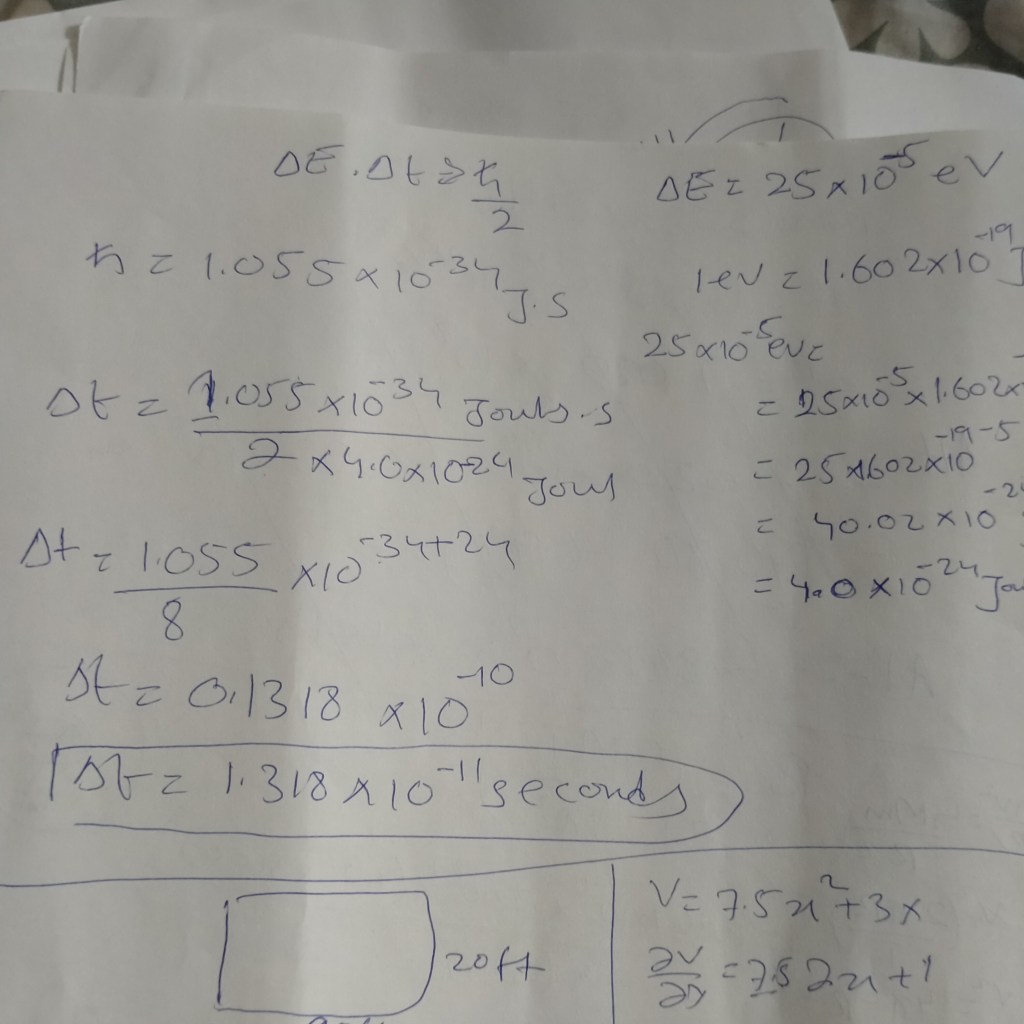 ΔE . Δt ≥ ħ/2
ħ = 1.055 × 10^-34 J.S
Δt = 1.055 × 10^-34 Jouls.s / 2 × 4.0 × 10^-24 Jouls
Δt = 1.055/8 × 10^-34+24
Δt = 0.1318 × 10^-10
Δt = 1.318 × 10^-11 seconds
ΔE = 25 × 10^-5 eV
1 ev = 1.602 × 10^-19 J
25 × 10^-5 ev =
= 25 × 10^-5 × 1.602 ×
= 25 × 1602 × 10^-19-5
= 40.02 × 10^-2
= 4.0 × 10^-24 Jou
20 ft
V = 7.5x^2 + 3x